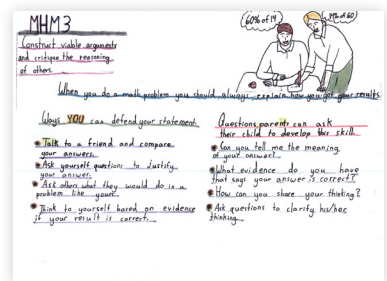 MHM3
Construct viable arguments
and critique the reasoning
of others.
60% of 14
14% of 60
When you do a math problem you should always explain how you got your results.
Ways YOU can defend your statement:
Talk to a friend and compare
your answer.
Ask yourself questions to justify
your answer.
Ask others what they would do in a
problem like yours.
Think to yourself based on evidence
if your result is correct.
Questions parents can ask
their child to develop this skill.
Can you tell me the meaning
of your answer?
What evidence do you have
that says your answer is correct?
How can you share your thinking?
Ask questions to clarify his/her
thinking.